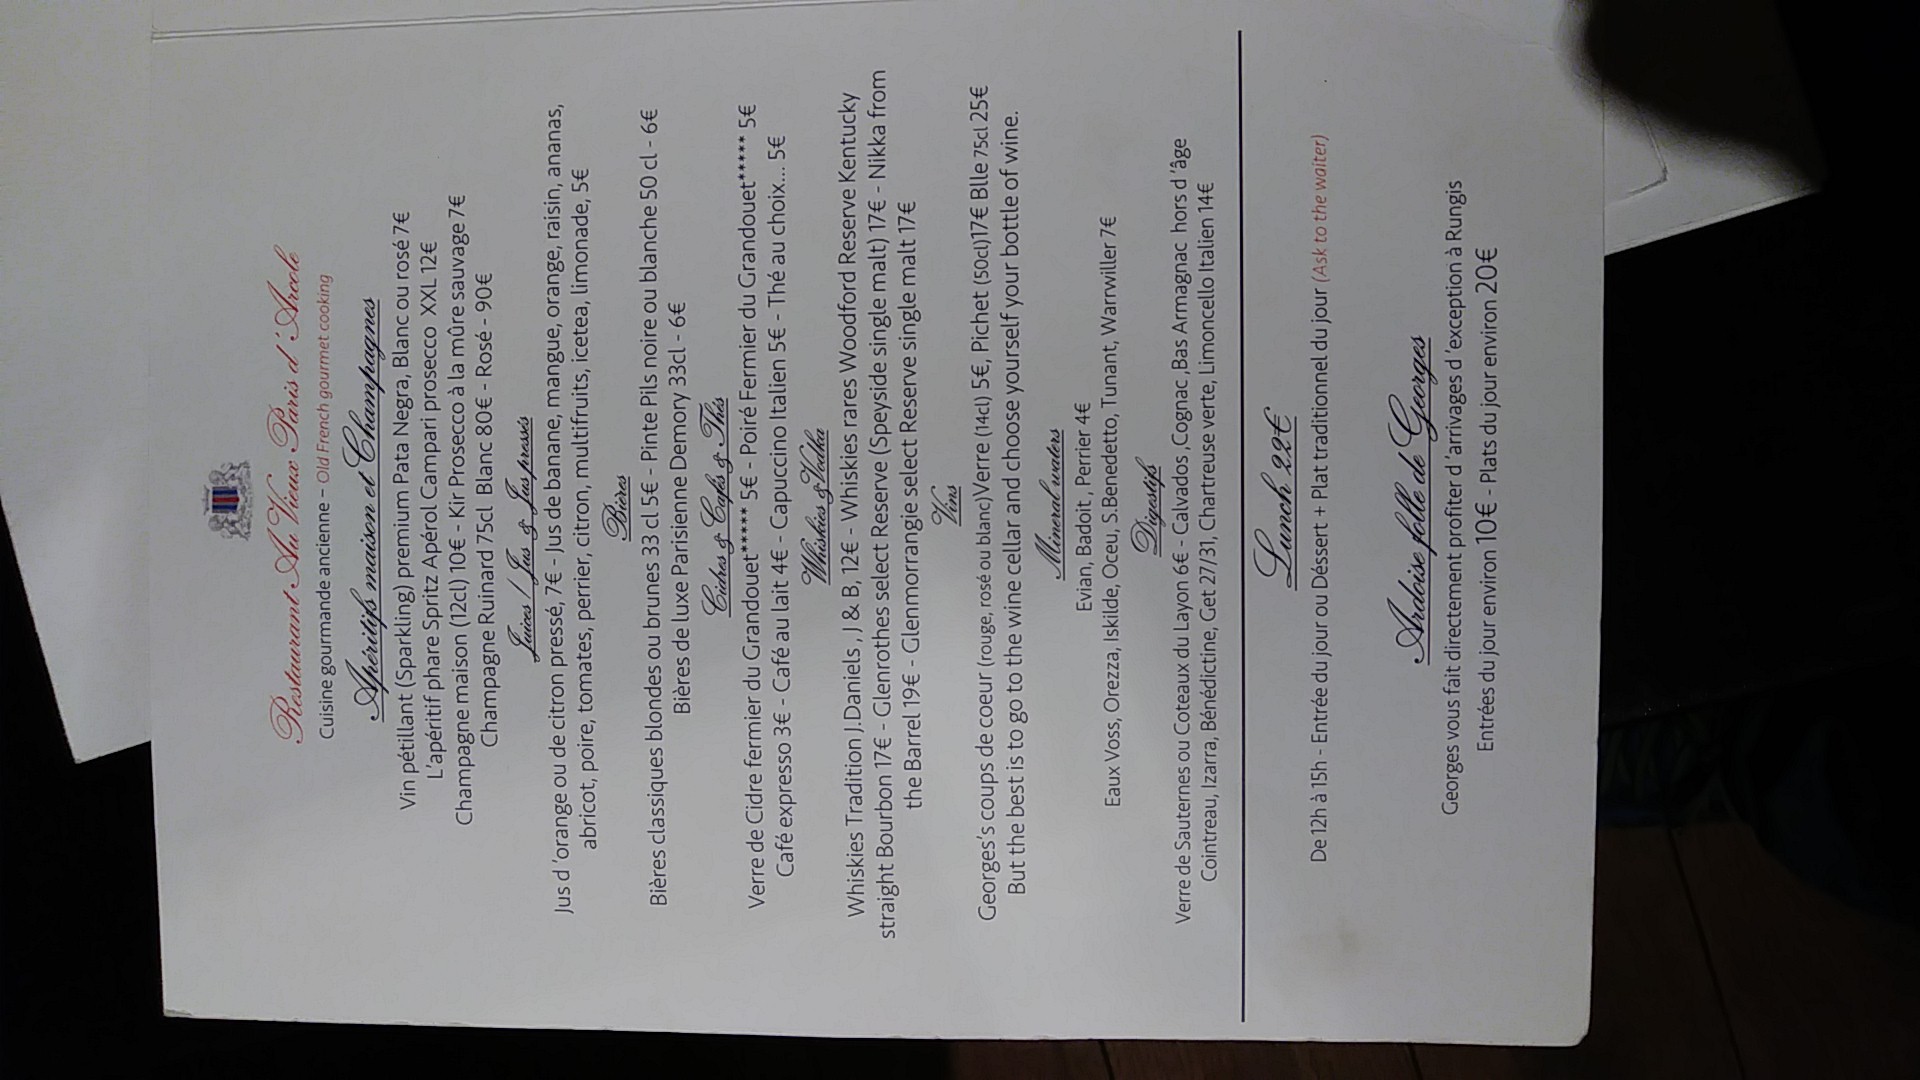 Restaurant Au Vieux Paris d'Arcole
Cuisine gourmande ancienne – Old French gourmet cooking
Apéritifs maison et Champagnes
Vin pétillant (Sparkling) premium Pata Negra, Blanc ou rosé 7€
L'apéritif phare Spritz Apérol Campari prosecco XXL 12€
Champagne maison (12cl) 10€ - Kir Prosecco à la mûre sauvage 7€
Champagne Ruinard 75cl Blanc 80€ - Rosé - 90€
Juices / Jus & Jus pressés
Jus d'orange ou de citron pressé, 7€ - Jus de banane, mangue, orange, raisin, ananas,
abricot, poire, tomates, perrier, citron, multifruits, icetea, limonade, 5€
Bières
Bières classiques blondes ou brunes 33 cl 5€ - Pinte Pils noire ou blanche 50 cl - 6€
Bières de luxe Parisienne Demory 33cl - 6€
Cidres & Cafés & Thés
Verre de Cidre fermier du Grandouet***** 5€ - Poiré Fermier du Grandouet***** 5€
Café expresso 3€ - Café au lait 4€ - Capuccino Italien 5€ - Thé au choix... 5€
Whiskies & Vodka
Whiskies Tradition J.Daniels , J & B, 12€ - Whiskies rares Woodford Reserve Kentucky
straight Bourbon 17€ - Glenrothes select Reserve (Speyside single malt) 17€ - Nikka from
the Barrel 19€ - Glenmorrangie select Reserve single malt 17€
Vins
Georges's coups de coeur (rouge, rosé ou blanc)Verre (14cl) 5€, Pichet (50cl)17€ Blle 75cl 25€
But the best is to go to the wine cellar and choose yourself your bottle of wine.
Mineral waters
Evian, Badoit , Perrier 4€
Eaux Voss, Orezza, Iskilde, Oceu, S.Benedetto, Tunant, Warrwiller 7€
Digestifs
Verre de Sauternes ou Coteaux du Layon 6€ - Calvados ,Cognac ,Bas Armagnac hors d'âge
Cointreau, Izarra, Bénédictine, Get 27/31, Chartreuse verte, Limoncello Italien 14€
Lunch 22€
De 12h à 15h - Entrée du jour ou Déssert + Plat traditionnel du jour (Ask to the waiter)
Ardoise folle de Georges
Georges vous fait directement profiter d'arrivages d'exception à Rungis
Entrées du jour environ 10€ - Plats du jour environ 20€